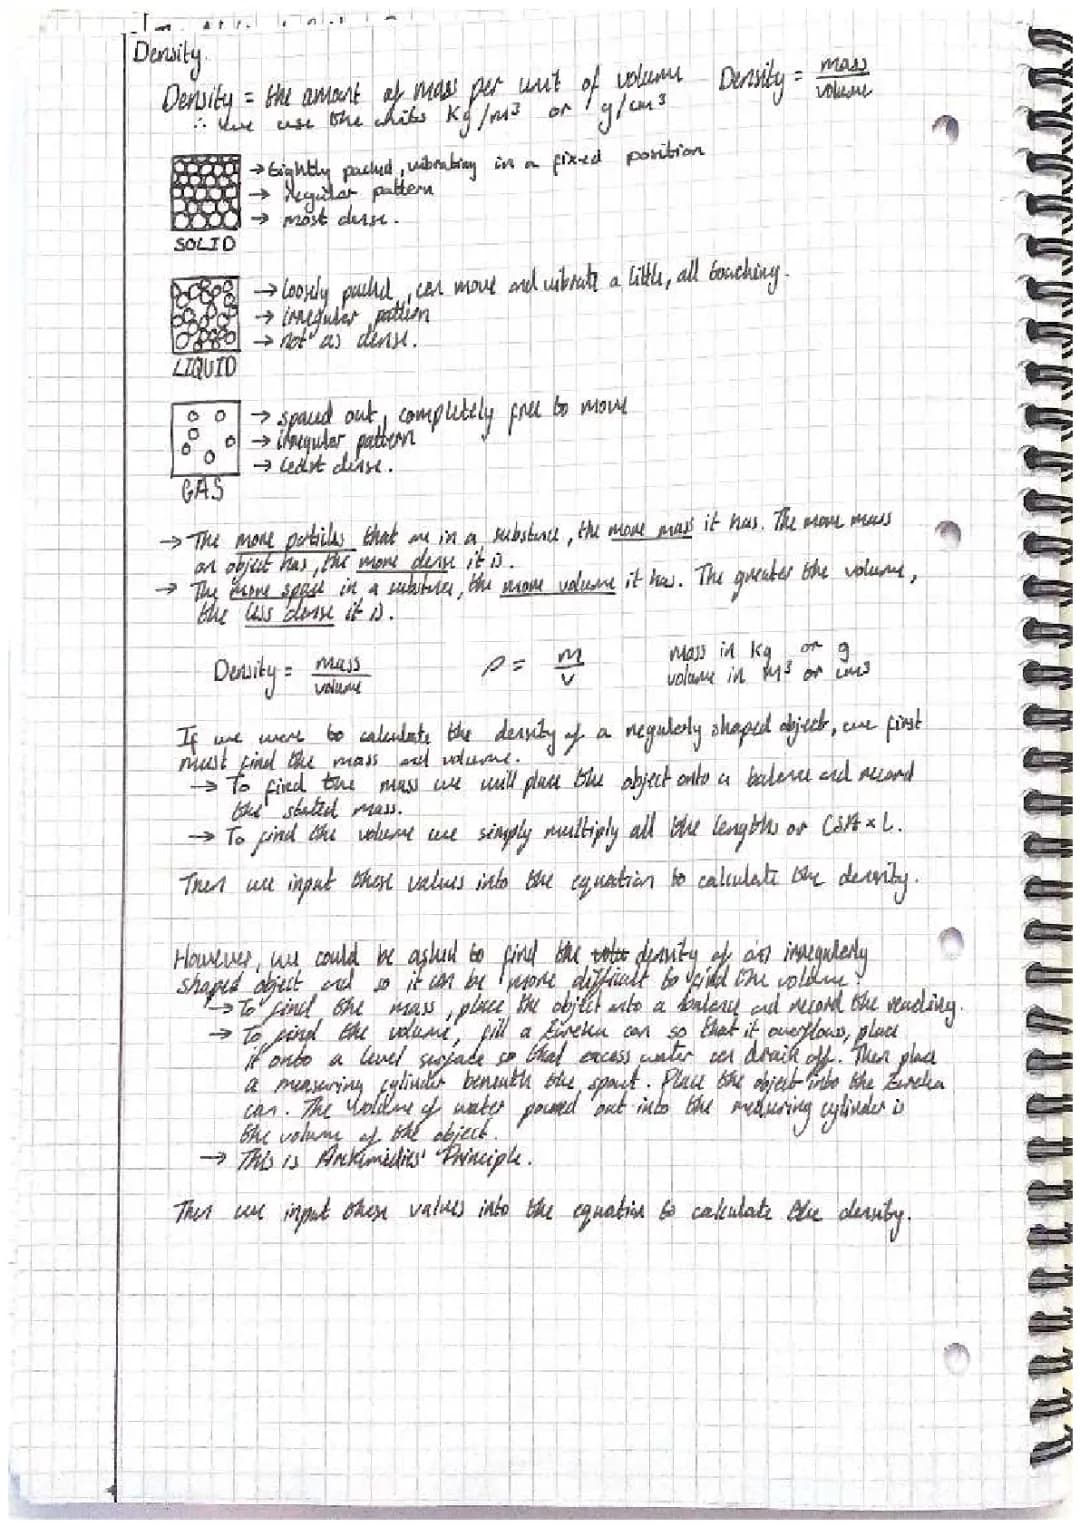 Density.
Density = the amount of mass per unit of volume
Density = mass / volume
∴ we use the units Kg/m³ or g/cm³
→ tightly packed, vibrating in a fixed position
→ regular pattern
→ most dense.
SOLID
→ loosely packed, can move and vibrate a little, all touching.
→ irregular pattern
→ not as dense.
LIQUID
→ spaced out, completely free to move
→ irregular pattern
→ least dense.
GAS
→ The more particles that are in a substance, the more mass it has. The more mass
an object has, the more dense it is.
→ The more space in a substance, the more volume it has. The greater the volume,
the less dense it is.
Density = mass / volume
ρ = m / v
mass in Kg or g
volume in m³ or cm³
If we were to calculate the density of a regularly shaped object, we first
must find the mass and volume.
→ To find the mass we will place the object onto a balance and record
the stated mass.
→ To find the volume we simply multiply all the lengths or CSA × L.
Then we input these values into the equation to calculate the density.
However, we could be asked to find the density of an irregularly
shaped object and so it can be more difficult to find the volume.
→ To find the mass, place the object onto a balance and record the reading.
→ To find the volume, fill a Eureka can so that it overflows, place
it onto a level surface so that excess water can drain off. Then place
a measuring cylinder beneath the spout. Place the object into the Eureka
can. The volume of water poured out into the measuring cylinder is
the volume of the object.
→ This is Arkimedies' Principle.
Then we input these values into the equation to calculate the density.